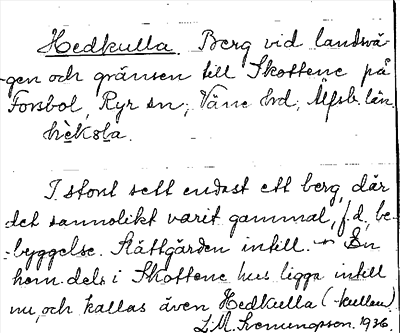 Hedkulla. Berg vid landsvä-
gen och gränsen till Skottene på
Forsbol, Ryr sn, Väne hd, Älfsb. län.
hèksla.
I stort sett endast ett berg, där
det sannolikt varit gammal, f.d. be-
byggelse. Slättgården intill. En
hem.del i Skottene hus ligga intill
nu, och kallas även Hedkulla (-kullen)
1936.